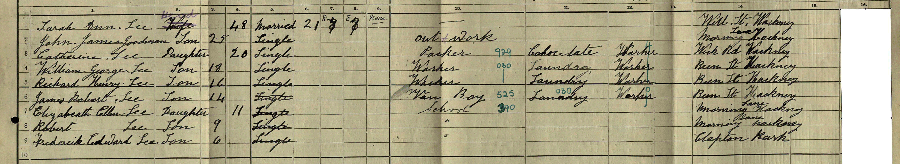 Sarah Ann Lee Wife 48 Married 21 8 7 None Hackney
John James Goodman Son 25 Single out work Hackney
Catherine Lee Daughter 20 Single Packer 929 Worker Wick Rd Hackney
William George Lee Son 18 Single Worker 050 Laundry Worker Bun St Hackney
Richard Henry Lee Son 16 Single Worker Laundry Worker Bun St Hackney
James Robert Lee Son 14 Single Van Boy 525 Laundry 050 Worker Bun St Hackney
Elizabeth Ellen Lee Daughter 11 Single School 390 Morning Lane Hackney
Robert Lee Son 9 Single " Morning Lane Hackney
Frederick Edward Lee Son 6 Single " Clapton Park